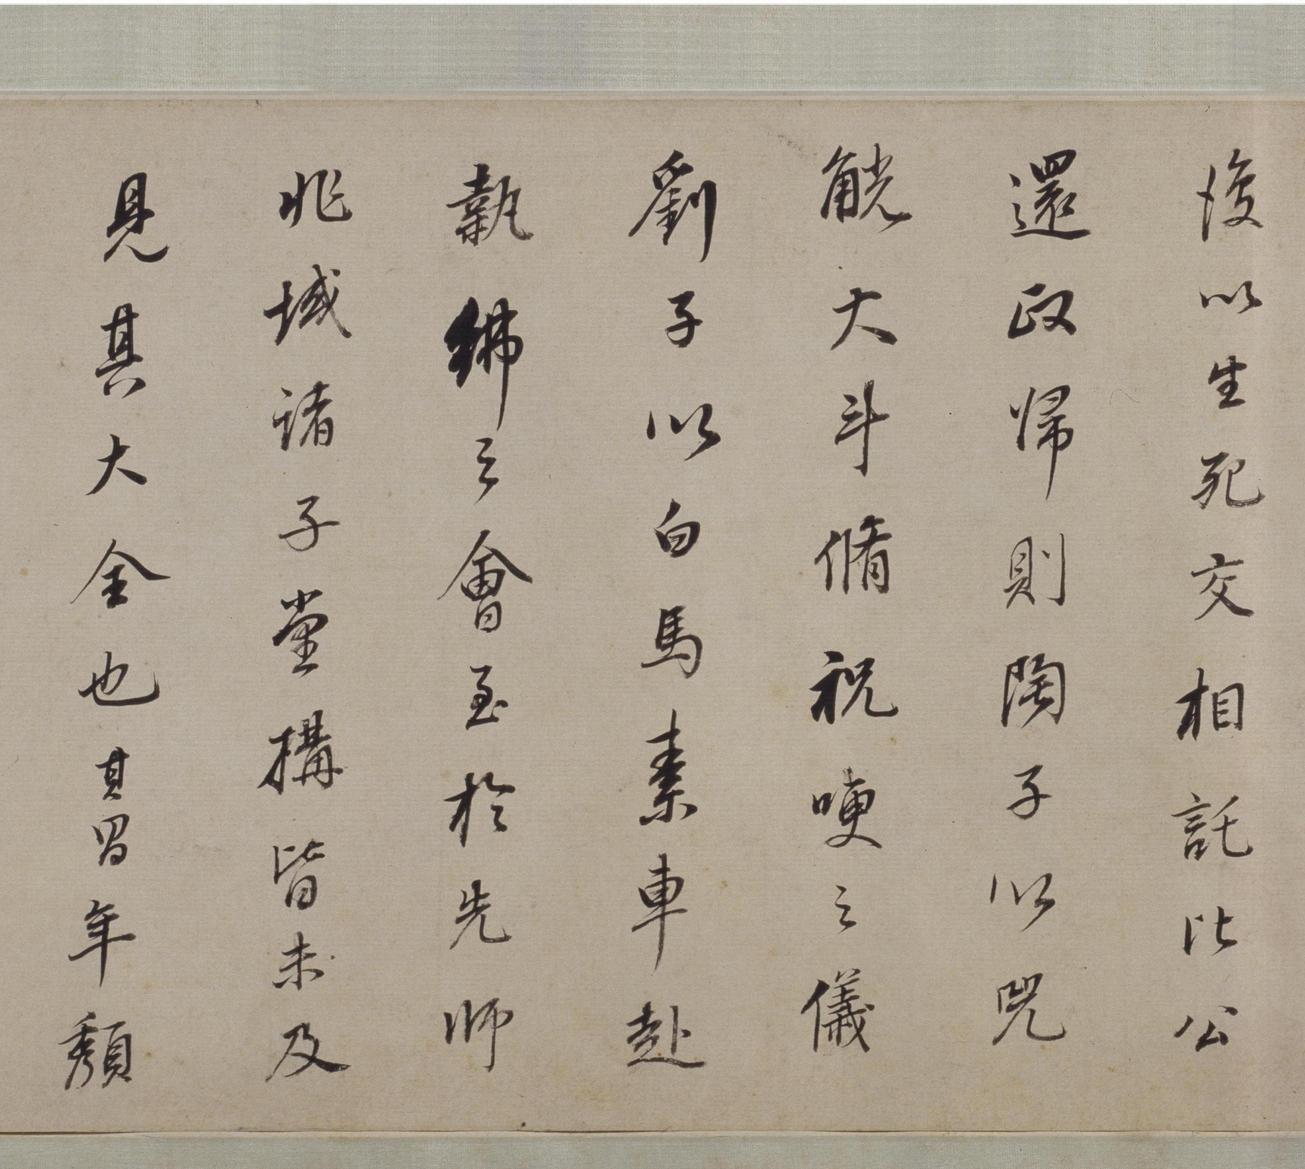 復以生死交相託比公
還政歸則陶子以兕
觥大斗脩祝哽之儀
劉子以白馬素車赴
執紼之會至於先師
兆域諸子堂構皆未及
見其大全也其昌年頹